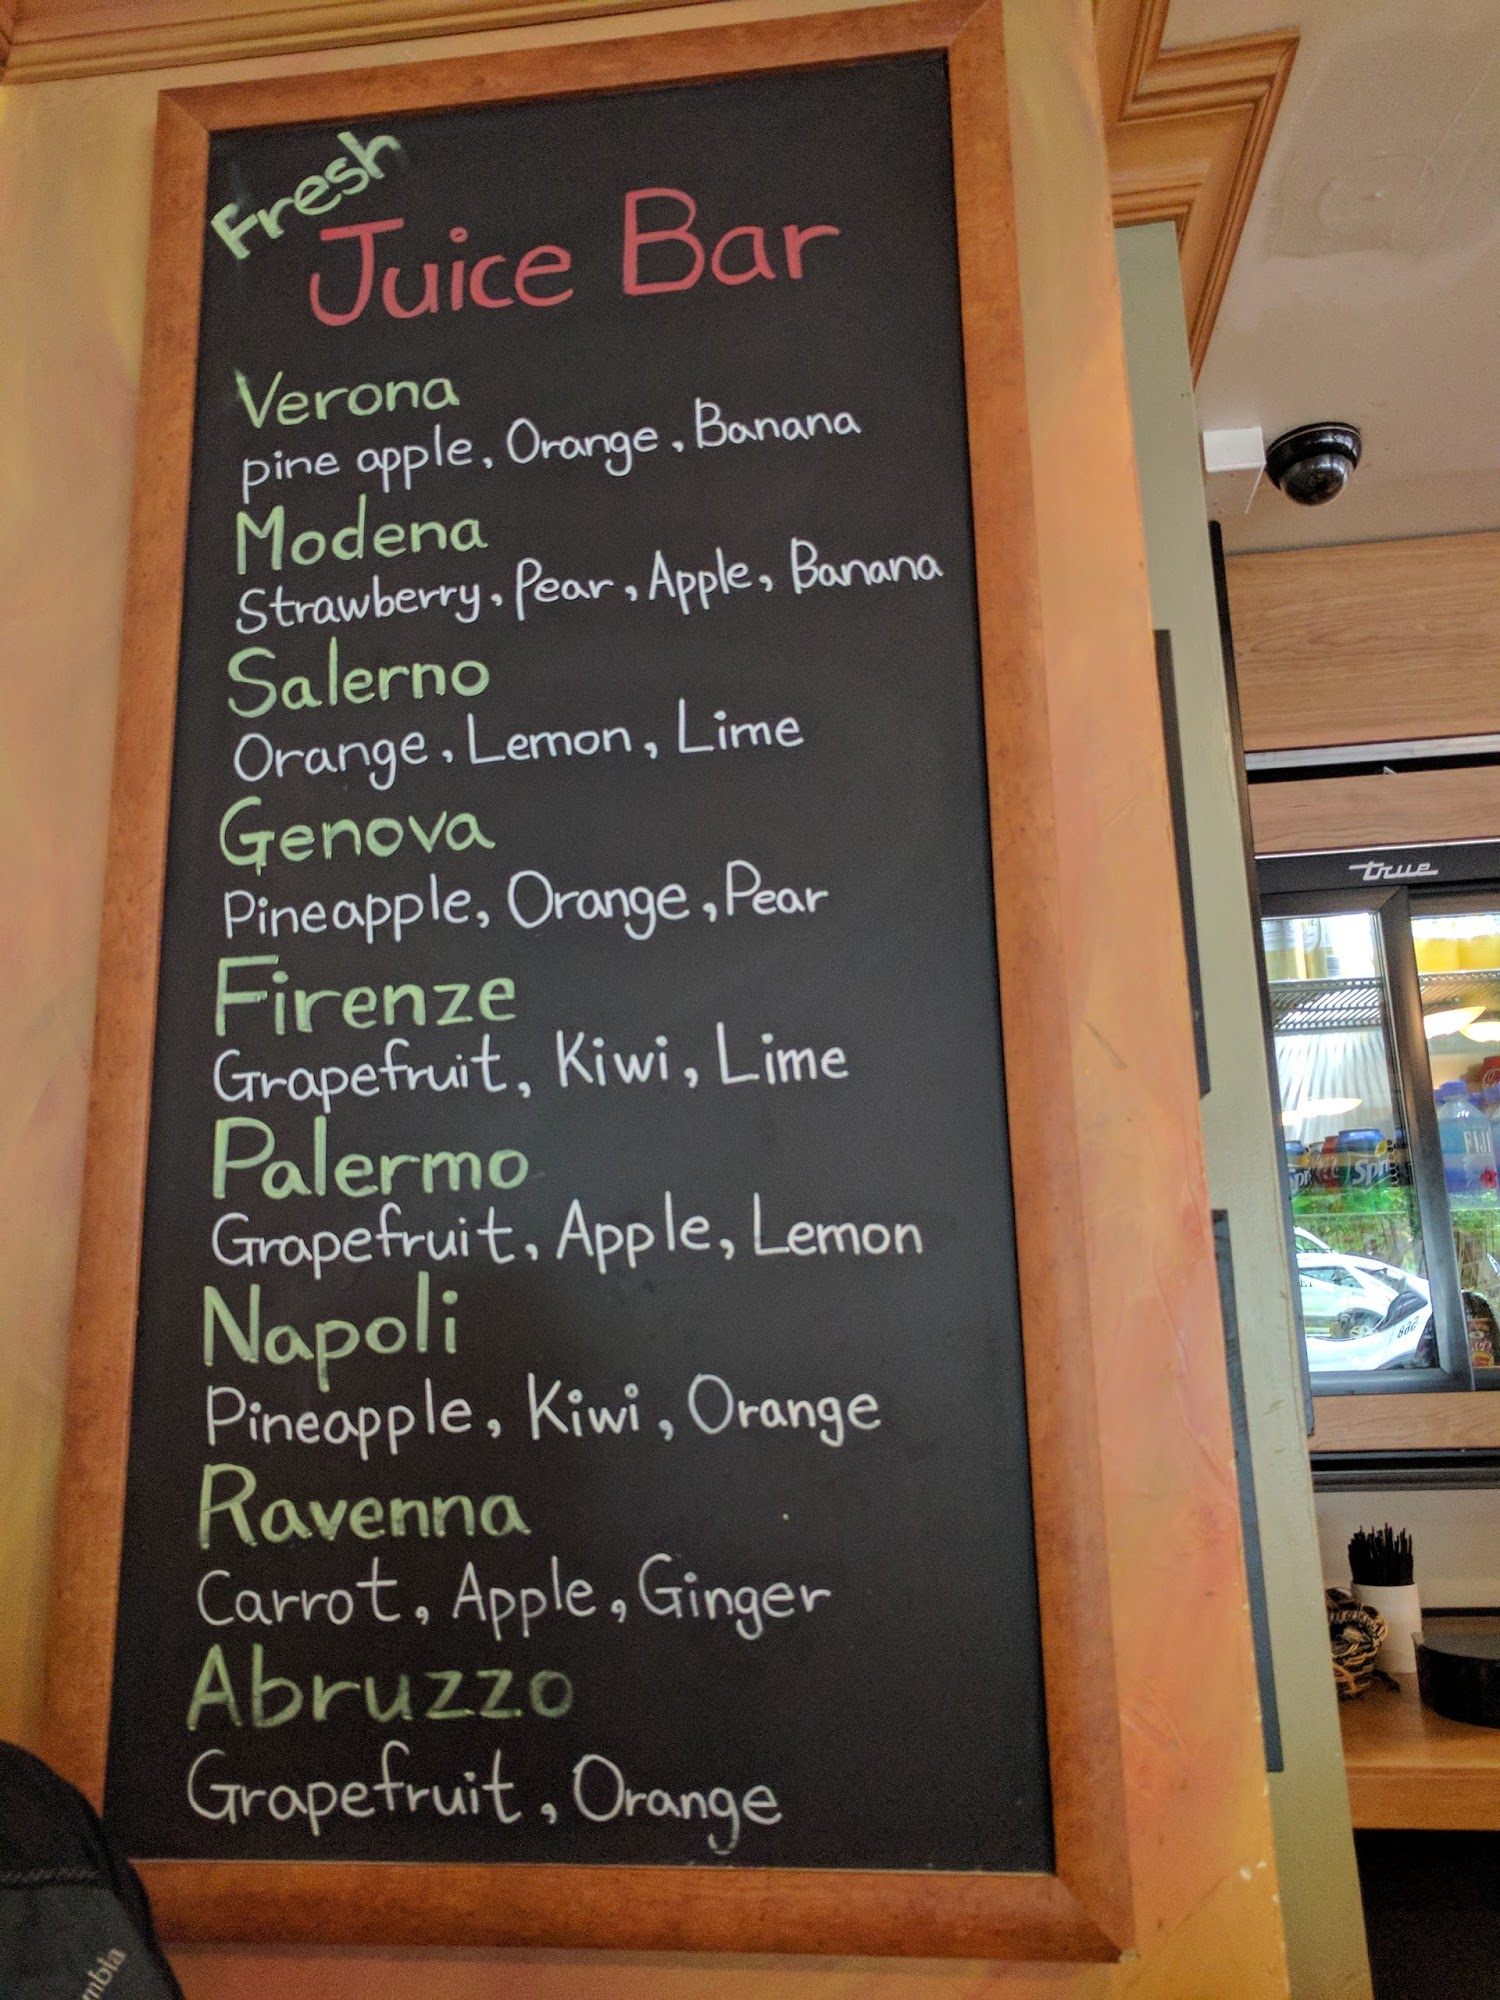 Fresh
Juice Bar
Verona
pine apple, Orange, Banana
Modena
Strawberry, Pear, Apple, Banana
Salerno
Orange, Lemon, Lime
Genova
Pineapple, Orange, Pear
Firenze
Grapefruit, Kiwi, Lime
Palermo
Grapefruit, Apple, Lemon
Napoli
Pineapple, Kiwi, Orange
Ravenna
Carrot, Apple, Ginger
Abruzzo
Grapefruit, Orange
true
FIJI